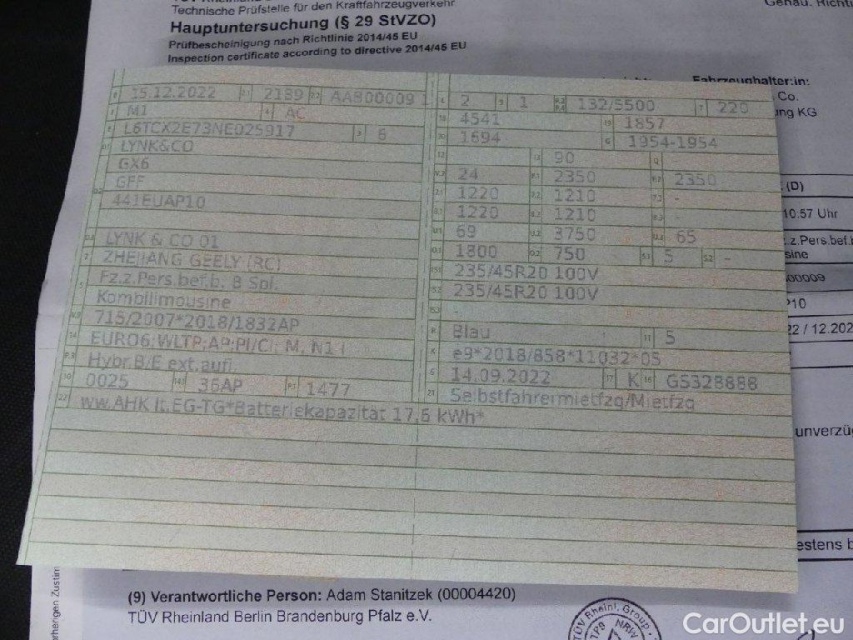 Technische Prüfstelle für den Kraftfahrzeugverkehr
Hauptuntersuchung (§ 29 StVZO)
Prüfbescheinigung nach Richtlinie 2014/45 EU
Inspection certificate according to directive 2014/45 EU
Fahrzeughalter:in:
Co.
ng KG
15.12.2022 2189 AAB00009 1 2 1 132/5500 220
M1 AC 4541 1857
L6TCX2E73NE025917 6 1694 1954-1954
LYNK&CO 90
GX6 24 2350 2350
GFF 1220 1210 -
441EUAP10 1220 1210 -
69 3750 65
LYNK & CO 01 1800 750 5 -
ZHEJIANG GEELY (RC) 235/45R20 100V
Fz.z.Pers.bef.b. 8 Spl. 235/45R20 100V
Kombilimousine
715/2007*2018/1832AP Blau 5
EURO6;WLTP;AP;PI/CI; M, N1 I e9*2018/858*11032*05
Hybr.B/E ext.aufl. 14.09.2022 K GS328888
0025 36AP 1477 Selbstfahrermietfzg/Mietfzg
ww.AHK lt.EG-TG*Batteriekapazität 17,6 kWh*
(D)
10.57 Uhr
z.Pers.bef.b
sine
00009
P10
22 / 12.202
unverzü
estens b
(9) Verantwortliche Person: Adam Stanitzek (00004420)
TÜV Rheinland Berlin Brandenburg Pfalz e.V.
TÜV Rheinl. Group
NRW
CarOutlet.eu